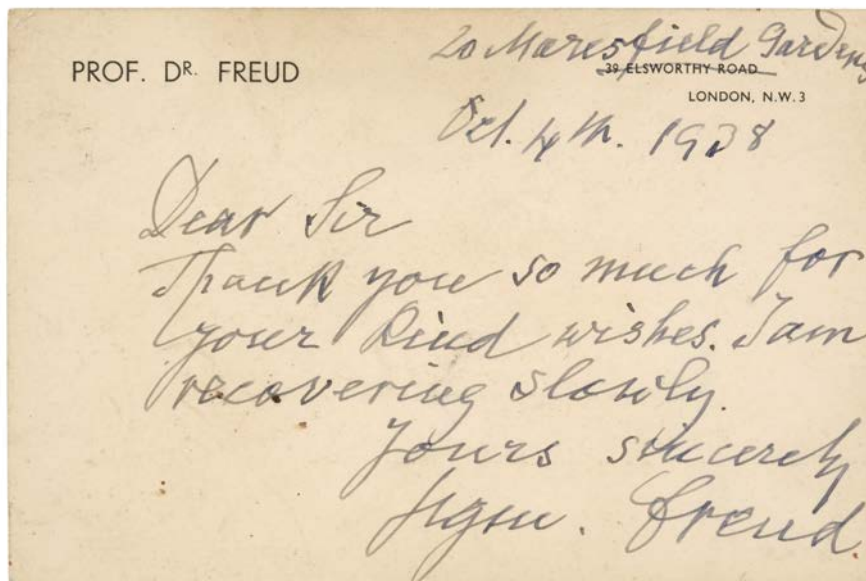 20 Maresfield Gardens
PROF. DR. FREUD
39 ELSWORTHY ROAD
LONDON, N.W.3
Oct. 4th. 1938
Dear Sir
Thank you so much for
your kind wishes. I am
recovering slowly.
Yours sincerely
Sigm. Freud.